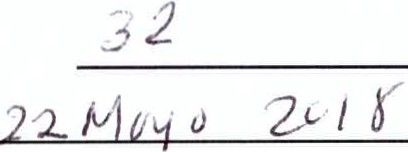 32
22 Mayo 2018